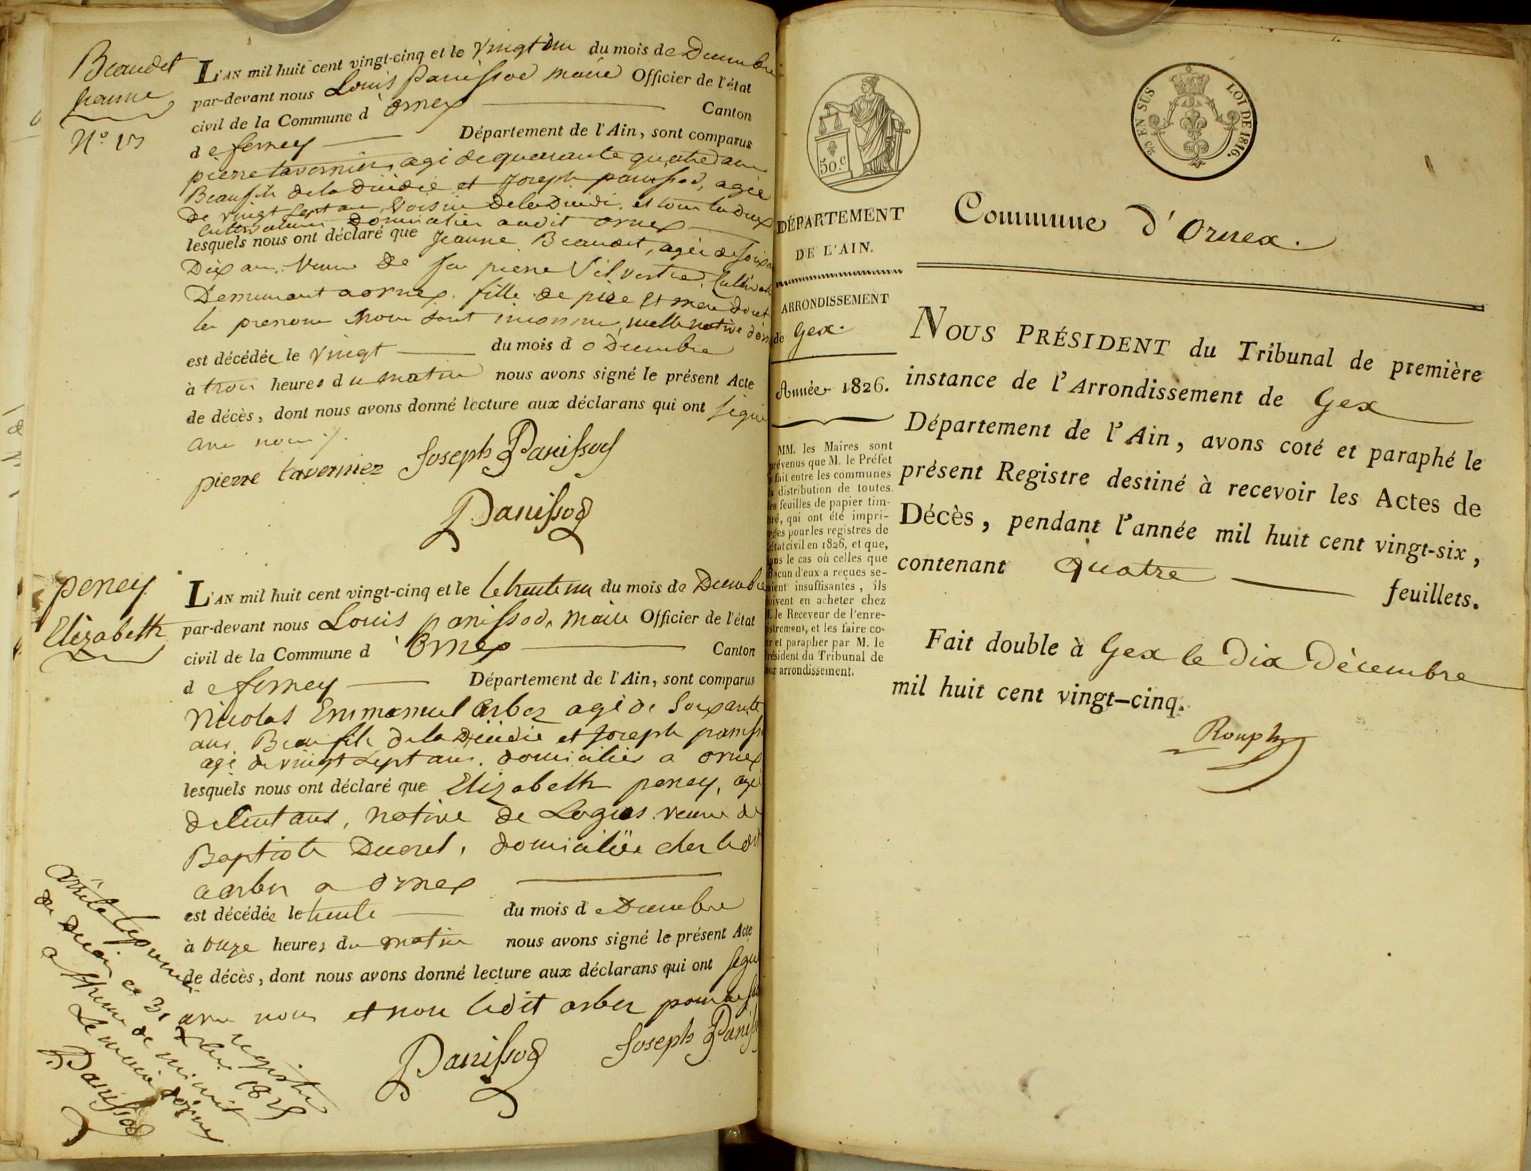 Beaudet
Jeanne
N.º 13
L'AN mil huit cent vingt-cinq et le vingt un du mois de Decembre
par-devant nous Louis Panissod maire Officier de l'état
civil de la Commune d'Ornex Canton
de ferney Département de l'Ain, sont comparus
pierre tavernier, agé de quarante quatre ans
Beaufils de la Deidie et Joseph panissod, agée
De vingt sept ans, Voisin de la et tous les deux
Cultivateurs domiciliés audit ornex
lesquels nous ont déclaré que Jeanne Beaudet, agée de soix
Dix ans. Veuve de feu pierre Silvestre, Cultiv
Demeurant a ornex. fille de père Et mère dont
les prenom Nom sont inconnu, native d'orn
est décédée le vingt du mois de Decembre
à trois heures du matin nous avons signé le présent Acte
de décès, dont nous avons donné lecture aux déclarans qui ont signé
avec nous ./.
pierre taverniez Joseph Panissod
Panissod
peney
Elizabeth
L'AN mil huit cent vingt-cinq et le trente un du mois de Decembre
par-devant nous Louis panissod, Maire Officier de l'état
civil de la Commune d'Ornex Canton
de ferney Département de l'Ain, sont comparus
Nicolas Emmanuel arbez agé de soixante
ans, Beaufils de la Deidie et Joseph paniss
agé de vingt sept ans. domiciliés a ornex
lesquels nous ont déclaré que Elizabeth peney, agé
de Cent ans, native de Logras veuve de
Baptiste Ducret, domiciliëe cher ledit
arbez a Ornex
est décédée le trente du mois de Decembre
à onze heures du matin nous avons signé le présent Acte
de décès, dont nous avons donné lecture aux déclarans qui ont signé
avec nous et non ledit arbez pour
Panissod Joseph Paniss
registre
ce 31 xbre 1825
a heure de minuit
Le maire d'ornex
Panissod
50.c
25 EN SUS LOI DE 1816.
DÉPARTEMENT
DE L'AIN.
ARRONDISSEMENT
de Gex.
Année 1826.
MM. les Maires sont
prévenus que M. le Préfet
fait entre les communes
la distribution de toutes
les feuilles de papier tim-
bré, qui ont été impri-
mées pour les registres de
l'état civil en 1826, et que,
dans le cas où celles que
chacun d'eux a reçues se-
raient insuffisantes, ils
doivent en acheter chez
M. le Receveur de l'enre-
gistrement, et les faire co-
ter et parapher par M. le
Président du Tribunal de
leur arrondissement.
Commune d'Ornex.
NOUS PRÉSIDENT du Tribunal de première
instance de l'Arrondissement de Gex
Département de l'Ain, avons coté et paraphé le
présent Registre destiné à recevoir les Actes de
Décès, pendant l'année mil huit cent vingt-six,
contenant Quatre feuillets.
Fait double à Gex le Dix Décembre
mil huit cent vingt-cinq.
Rouph